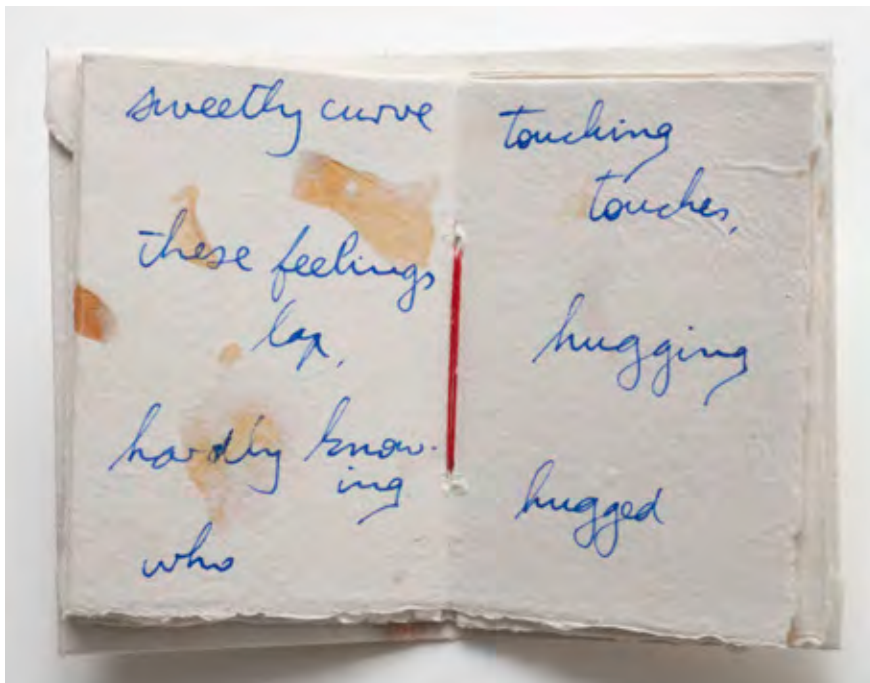 sweetly curve
these feelings
lap,
hardly know-
ing
who
touching
touches,
hugging
hugged